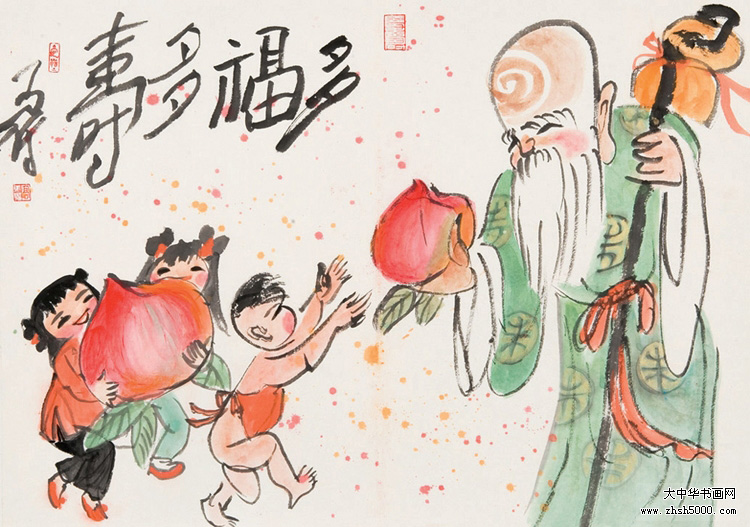 多福多壽
大中华书画网
www.zhsh5000.com